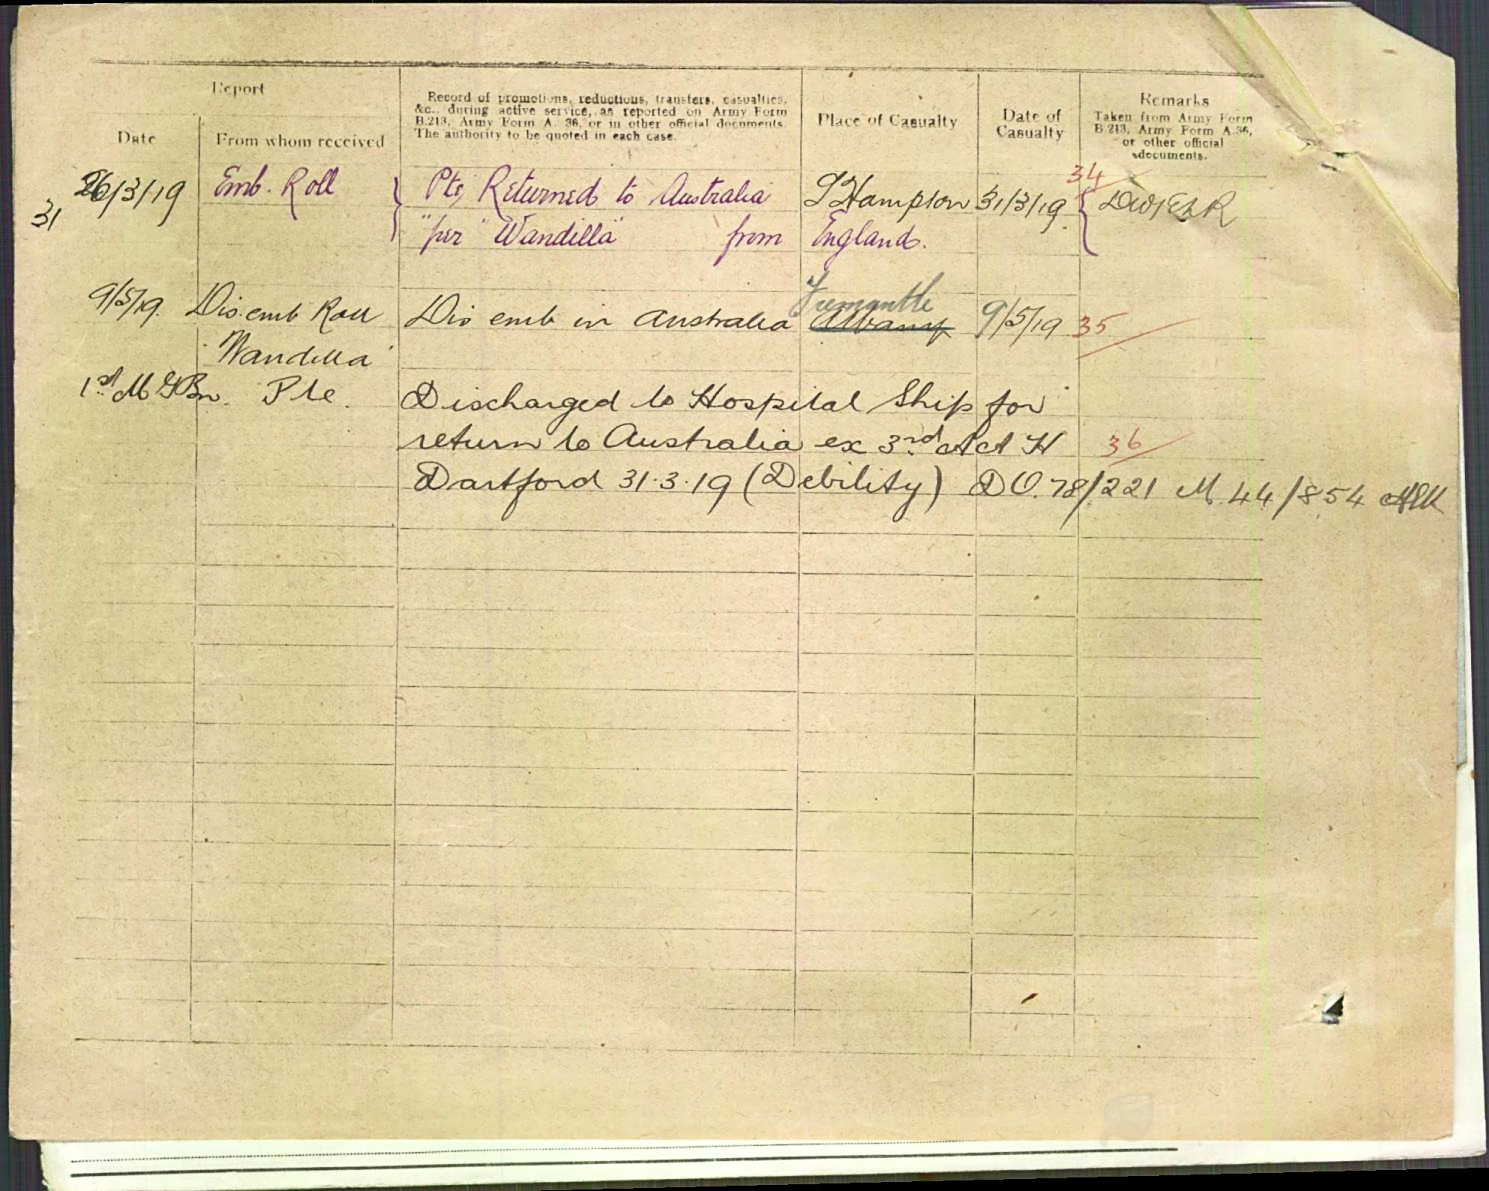 Report
Date
From whom received
Record of promotions, reductions, transfers, casualties,
&c., during active service, as reported on Army Form
B.213, Army Form A. 36, or in other official documents.
The authority to be quoted in each case.
Place of Casualty
Date of
Casualty
Remarks
Taken from Army Form
B.213, Army Form A.36,
or other official
documents.
34
26/3/19 Emb. Roll Pte, Returned to Australia S'Hampton 31/3/19
31 "per" Wandilla" from England.
Fremantle
9/5/19. Dis. emb Roll Dis emb in Australia Albany 9/5/19 35
"Wandilla"
1st M G Bn. Pte. Discharged to Hospital Ship for
return to Australia ex 3rd A A H 36
Dartford 31.3.19 (Debility) D O. 78/221 M 44/854